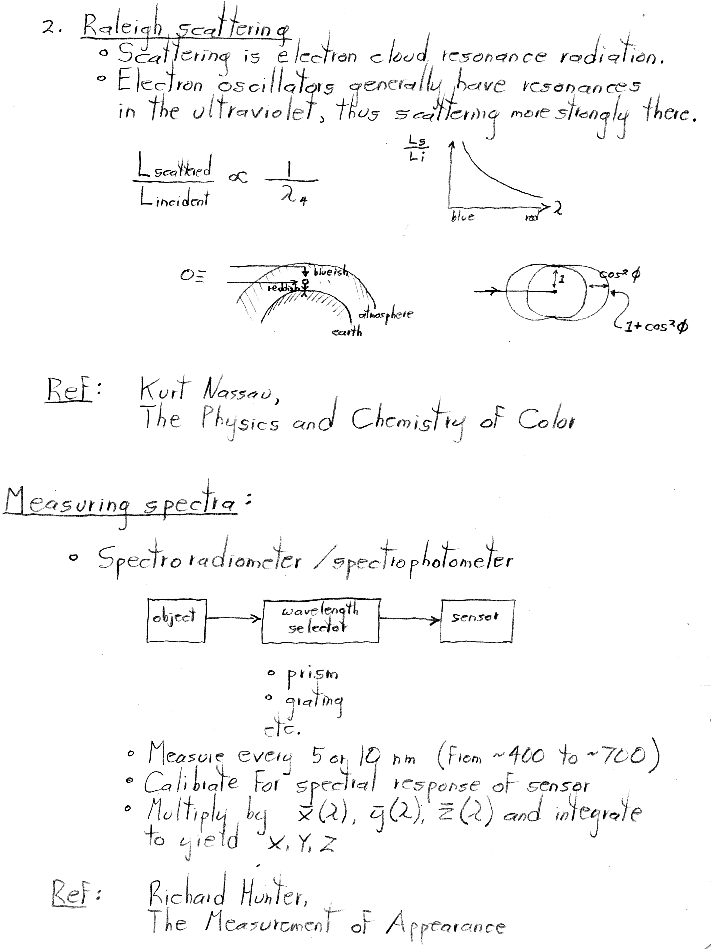 2. Raleigh scattering
° Scattering is electron cloud resonance radiation.
° Electron oscillators generally have resonances
in the ultraviolet, thus scattering more strongly there.
L scattered / L incident ∝ 1 / λ4
Ls / Li
blue red λ
blueish
reddish
atmosphere
earth
1 cos²ϕ
1 + cos²ϕ
Ref: Kurt Nassau,
The Physics and Chemistry of Color
Measuring spectra:
° Spectroradiometer / spectrophotometer
object → wavelength selector → sensor
° prism
° grating
etc.
° Measure every 5 or 10 nm (From ~400 to ~700)
° Calibrate for spectral response of sensor
° Multiply by x̄(λ), ȳ(λ), z̄(λ) and integrate
to yield X, Y, Z
Ref: Richard Hunter,
The Measurement of Appearance